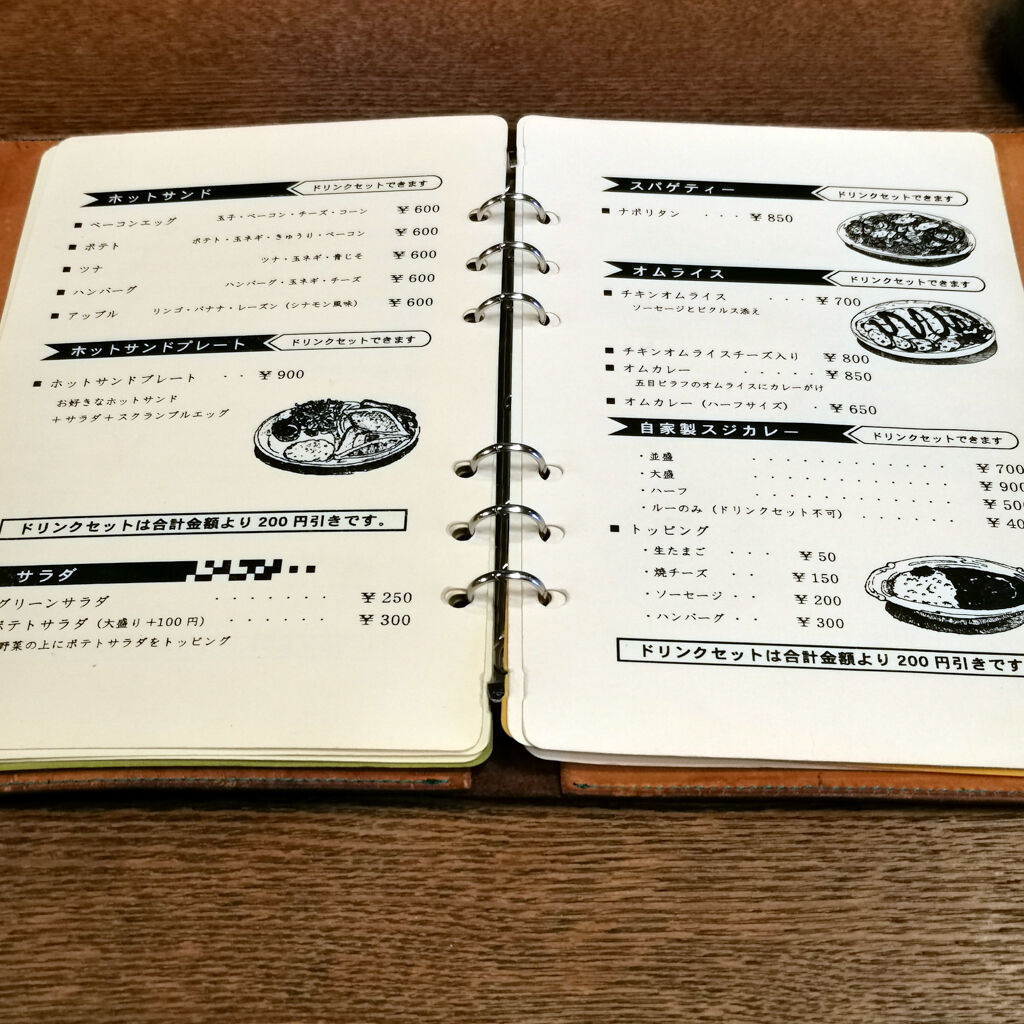 ホットサンド ドリンクセットできます
■ ベーコンエッグ 玉子・ベーコン・チーズ・コーン ¥600
■ ポテト ポテト・玉ネギ・きゅうり・ベーコン ¥600
■ ツナ ツナ・玉ネギ・青じそ ¥600
■ ハンバーグ ハンバーグ・玉ネギ・チーズ ¥600
■ アップル リンゴ・バナナ・レーズン(シナモン風味) ¥600
ホットサンドプレート ドリンクセットできます
■ ホットサンドプレート ・・ ¥900
お好きなホットサンド
+サラダ+スクランブルエッグ
ドリンクセットは合計金額より200円引きです。
サラダ
グリーンサラダ ・・・・・・・ ¥250
ポテトサラダ(大盛り+100円) ・・・・・・ ¥300
野菜の上にポテトサラダをトッピング
スパゲティー ドリンクセットできます
■ ナポリタン ・・・ ¥850
オムライス ドリンクセットできます
■ チキンオムライス ・・・ ¥700
ソーセージとピクルス添え
■ チキンオムライスチーズ入り ¥800
■ オムカレー ・・・・・ ¥850
五目ピラフのオムライスにカレーがけ
■ オムカレー(ハーフサイズ) ・ ¥650
自家製スジカレー ドリンクセットできます
・並盛 ・・・・・・・・・・・・ ¥700
・大盛 ・・・・・・・・・・・・ ¥900
・ハーフ ・・・・・・・・・・・・ ¥500
・ルーのみ(ドリンクセット不可) ・・・・・・ ¥40
■ トッピング
・生たまご ・・・ ¥50
・焼チーズ ・・ ¥150
・ソーセージ ・・ ¥200
・ハンバーグ ・・ ¥300
ドリンクセットは合計金額より200円引きです